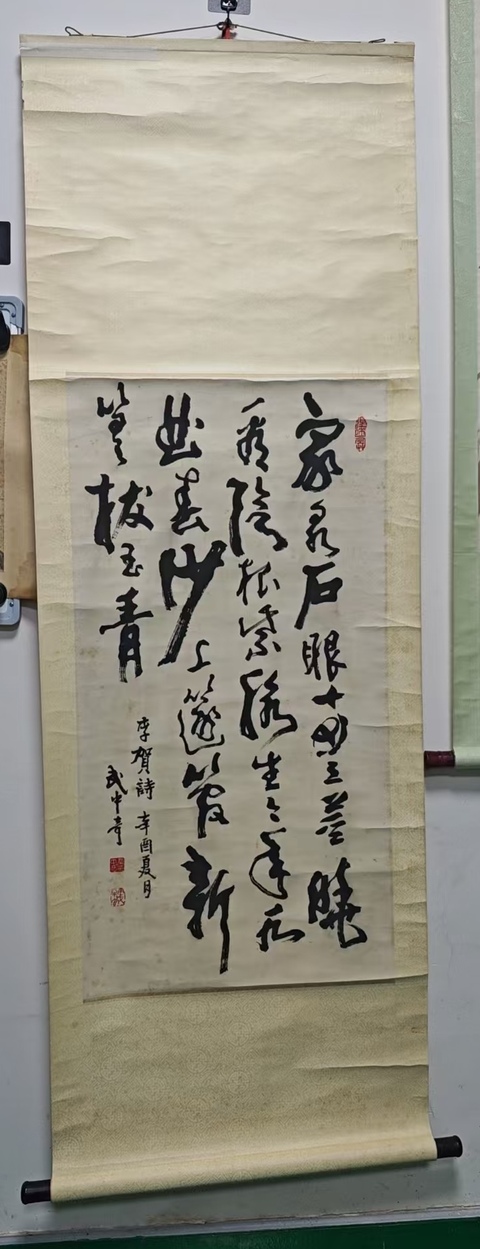 家泉石眼两三莖曉
看陰根紫脉生今年水
曲春沙上篴管新
篁拔玉青
李賀詩 辛酉夏月
武中奇